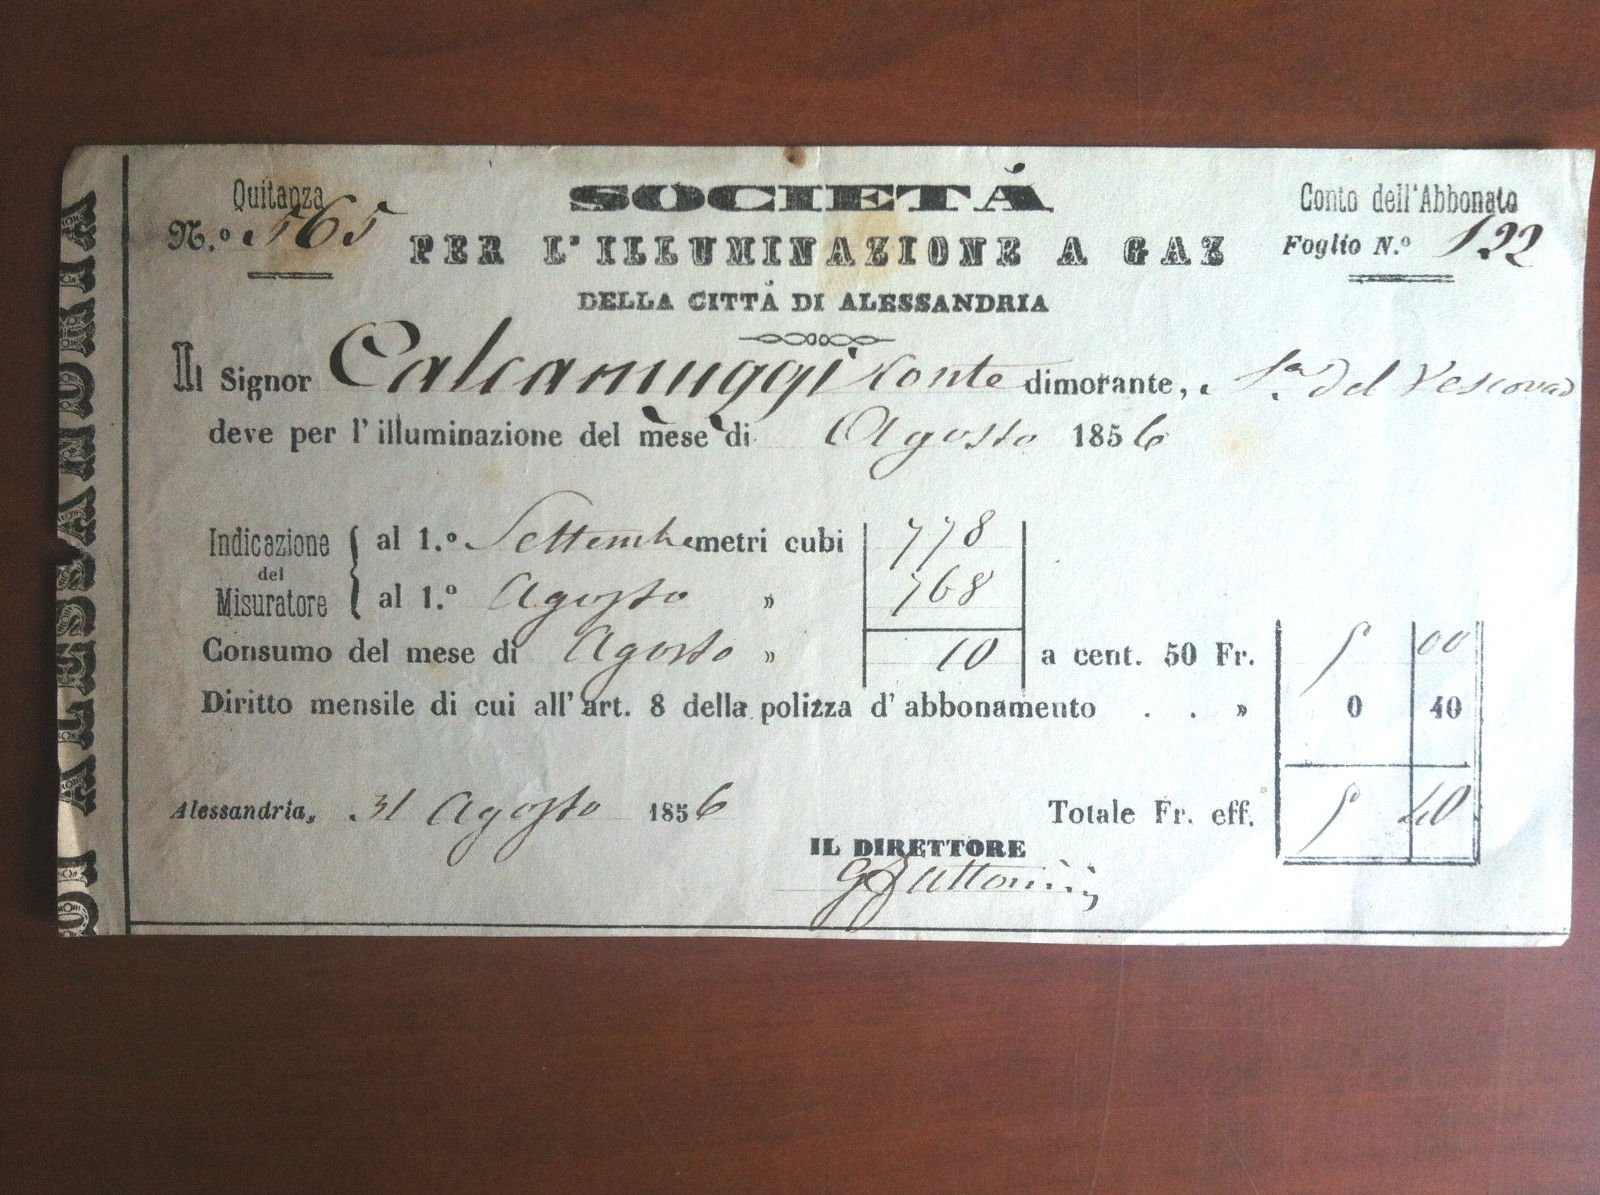 DI ALESSANDRIA
Quitanza
N.º 565
SOCIETÁ
PER L'ILLUMINAZIONE A GAZ
DELLA CITTÁ DI ALESSANDRIA
Conto dell'Abbonato
Foglio N.º 122
Il Signor Calcamuggi Conte dimorante, Sa. del Vescovad
deve per l'illuminazione del mese di Agosto 1856
Indicazione del Misuratore
al 1.º Settembre metri cubi 778
al 1.º Agosto » 768
Consumo del mese di Agosto » 10 a cent. 50 Fr. 5 00
Diritto mensile di cui all'art. 8 della polizza d'abbonamento . . » 0 40
Alessandria, 31 Agosto 1856 Totale Fr. eff. 5 40
IL DIRETTORE